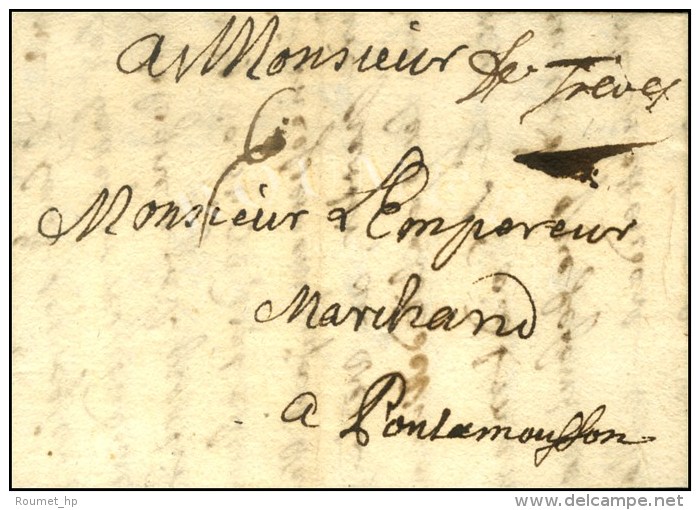 A Monsieur De Treves
6
Monsieur L'Empereur
Marchand
a Pontamousson
Roumet_hp
www.delcampe.net